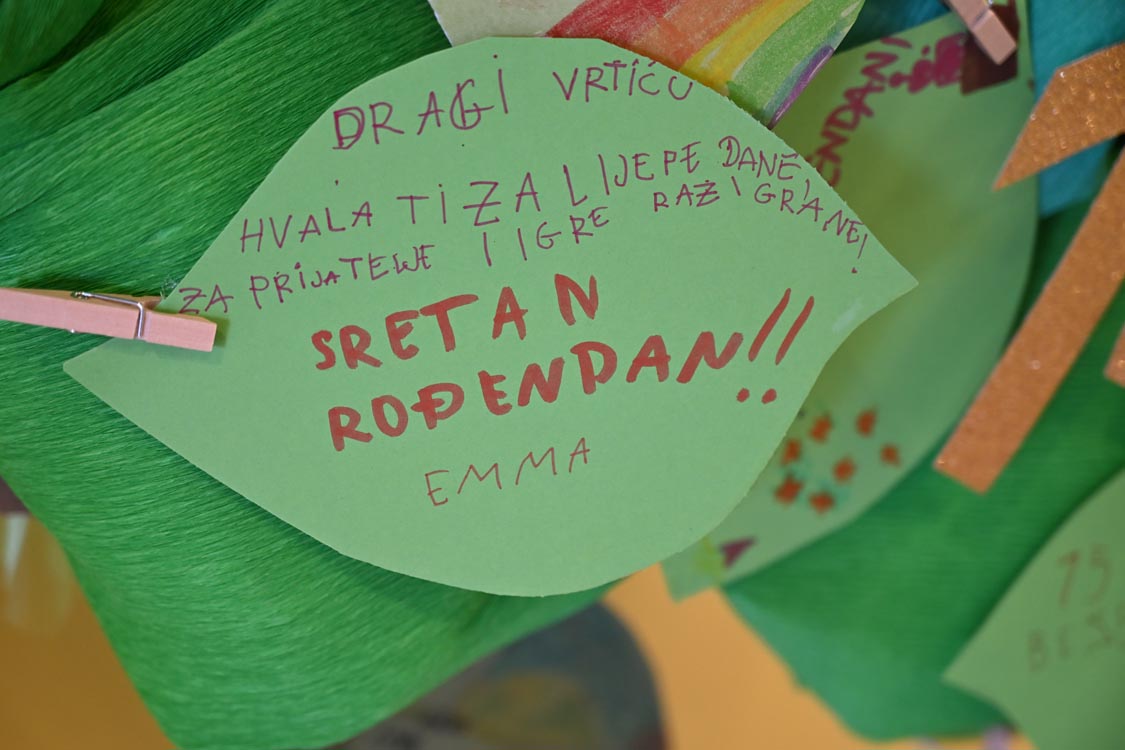 DRAGI VRTIĆU
HVALA TI ZA LIJEPE DANE,
ZA PRIJATELJE I IGRE RAZIGRANE!
SRETAN
ROĐENDAN!!
EMMA
ENDAN!
15